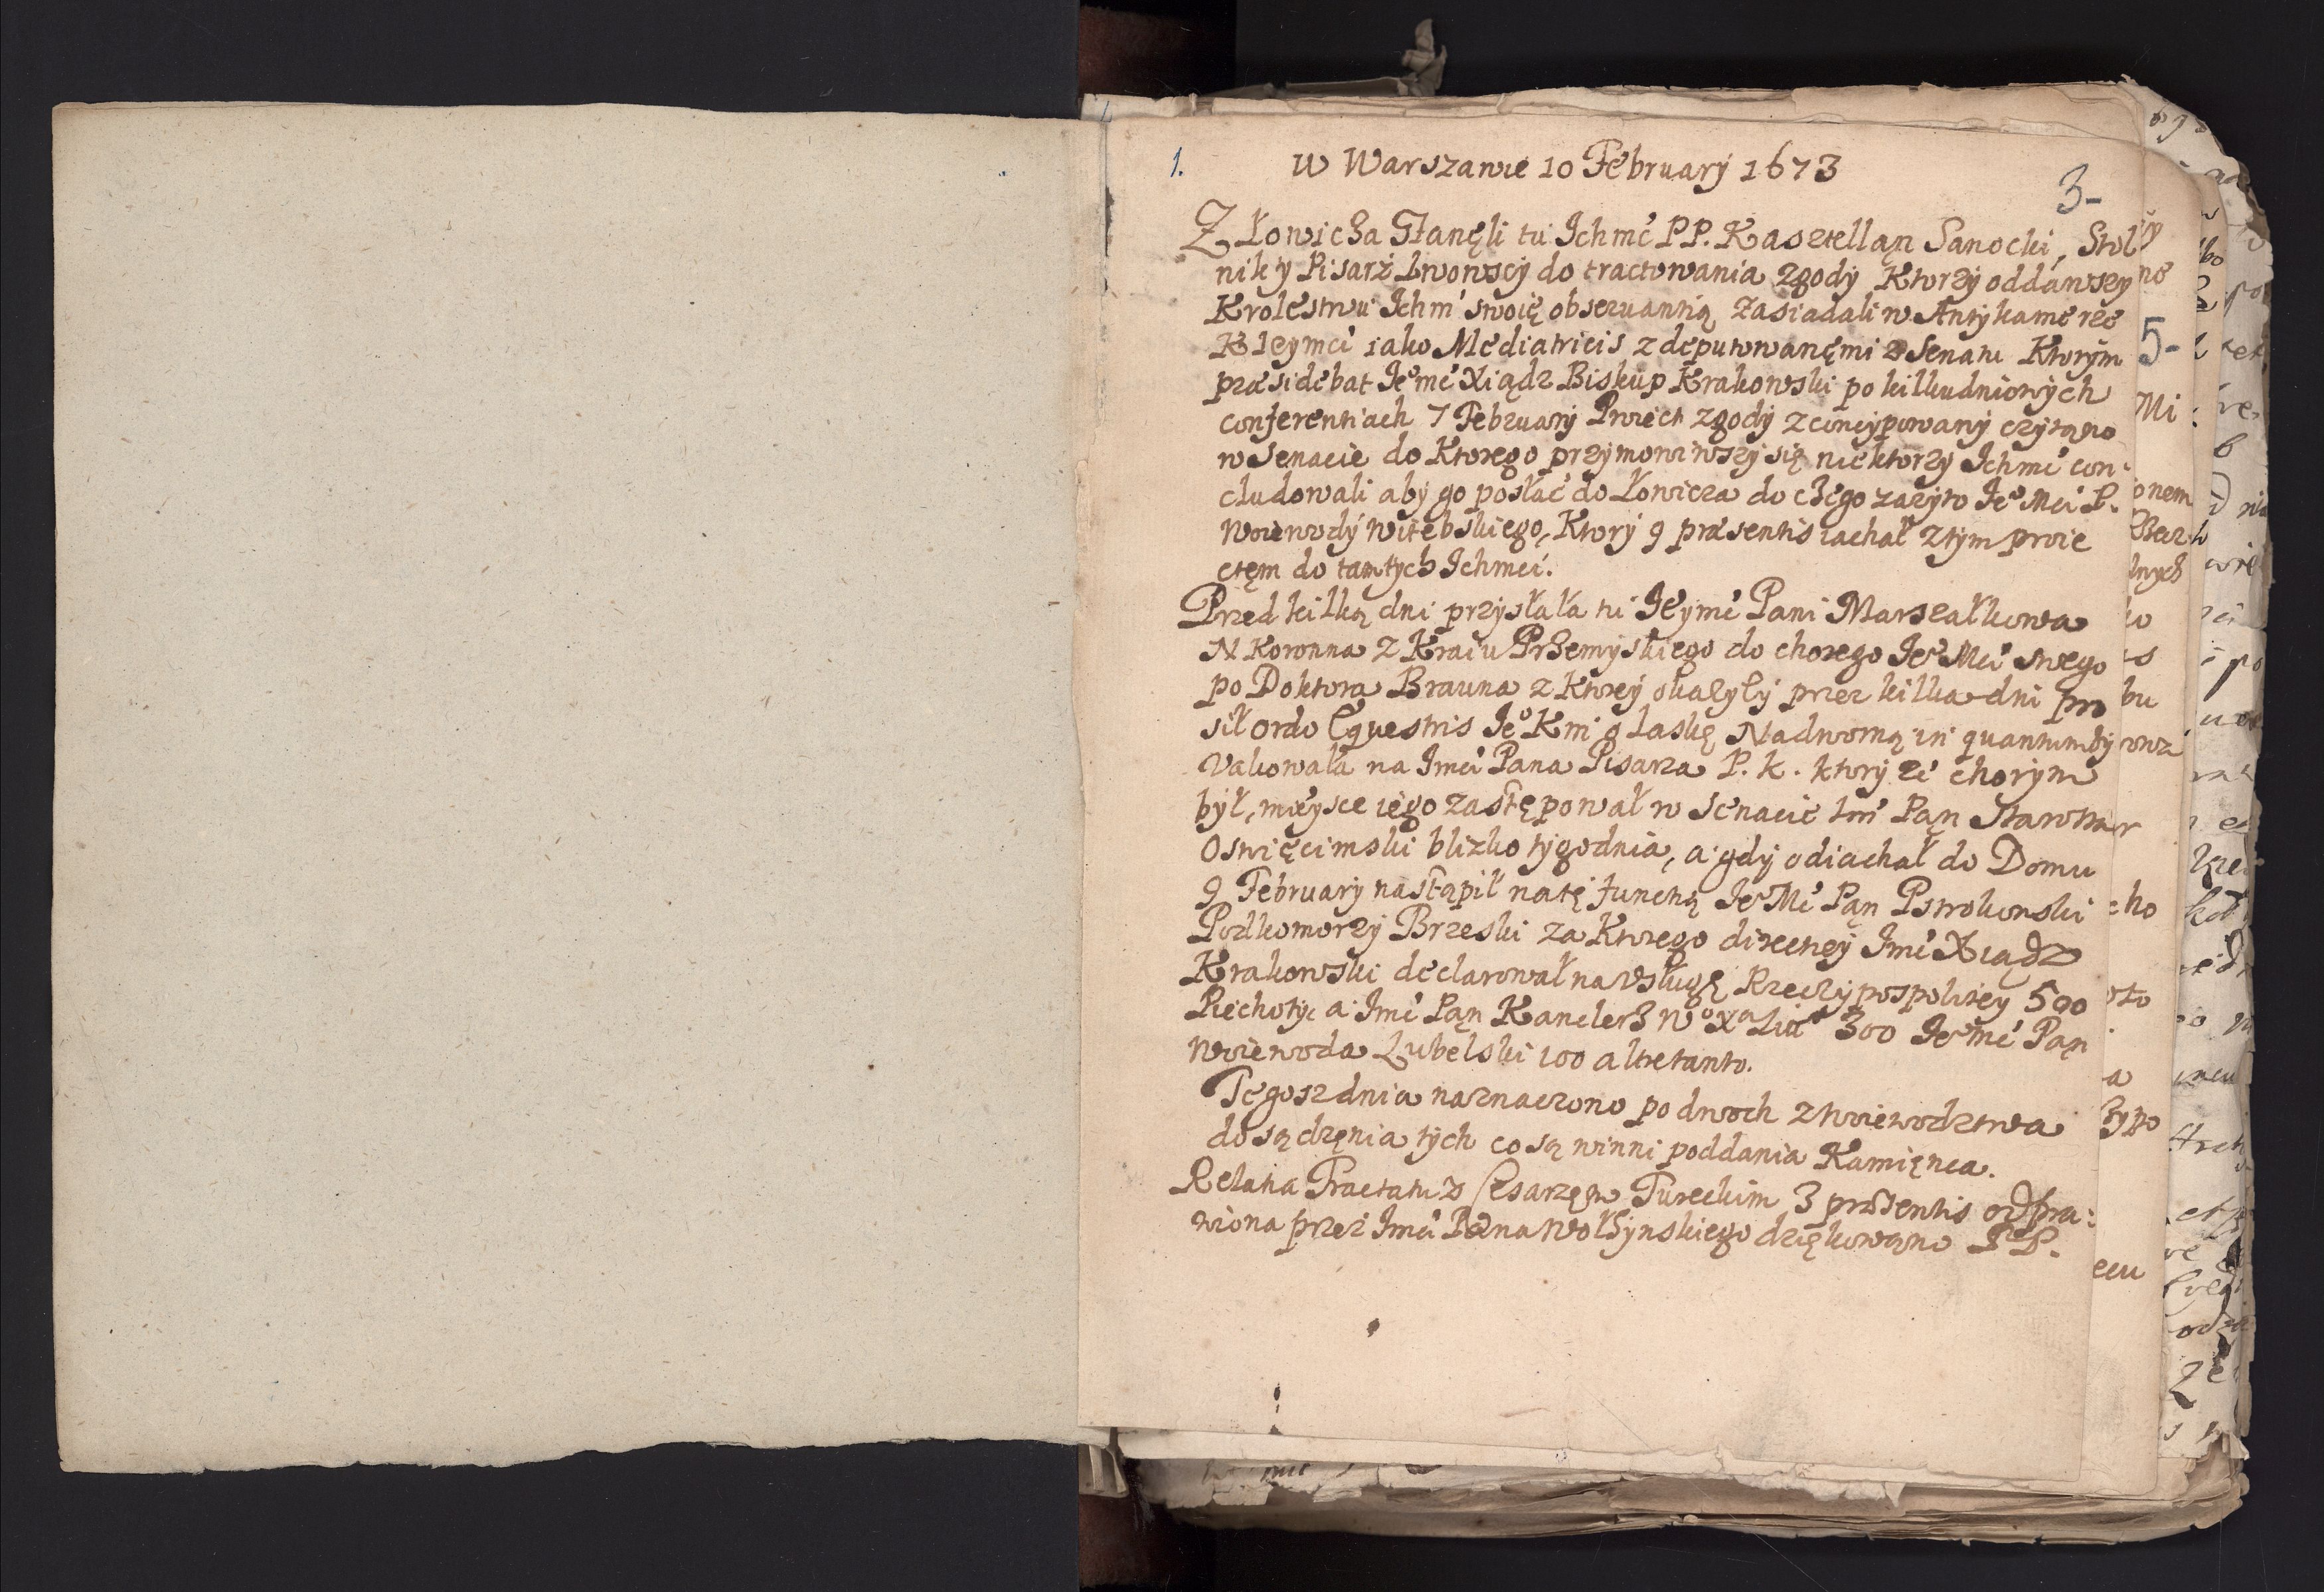 1.
W Warszawie 10 February 1673
3-
Z Łowicza stanęli tu Ichmć PP. Kasztelląn Sanocki, Stol
nik y Pisarż Lwowscy do tractowania zgody Ktorzy oddawszy
Krolestwu Ichm swoię observantią zasiadali w Antykamerze
K Ieymci iako Mediatricis z deputowanęmi z Senatu Ktorym
præsidebat Ieomć Xiądz Biskup Krakowski po kilkudniowych
conferentiach 7 February Proiect zgody zconcypowany czytąno
w Senacie do Ktorego przymowiwszy się niektorzy Ichmć con:
cludowali aby go posłać do Łowicza do czego zażyto Ieo Mci P.
Woiewody Witebskiego, Ktory 9 præsentis iachał z tym proie
ctęm do tamtych Ichmci.
Przed kilką dni przysłała tu Ieymć Pani Marszałkowa
N Koronna z Kraiu Przemyskiego do chorego Ieo Mci swego
po Doktora Brauna z Ktorey okazyiy przez kilka dni pro
sił ordo Equestris Ieo Km o Laskę Nadworną in quantum by
vakowała na Imci Pana Pisarza P. K. ktory że chorym
był, mieysce iego zastępował w Senacie Imć Pąn Starosta
Oswięcimski blizko tygodnia, a gdy odiachał do Domu
9 February nastąpił na tę functią Ieo Mć Pąn Pstrokonski
Podkomorzy Brzeski za Ktorego direkcyy Imć Xiądz
Krakowski declarował na vsługę Rzeczypospolitey 500
Piechoty, a Imć Pąn Kanclerz Wo Xa Lito 300 Ieo mć Pąn
Woiewoda Lubelski 100 alteltanto.
Tegosz dnia naznaczono po dwoch z Woiewodztwa
do sądzęnia tych co są winni poddania Kamięnca.
Relatia Tractatu z Cesarzęm Tureckim 3 præsentis odpra:
wiona przez Imci Pana Wołsynskiego dziękowano PP.
5-